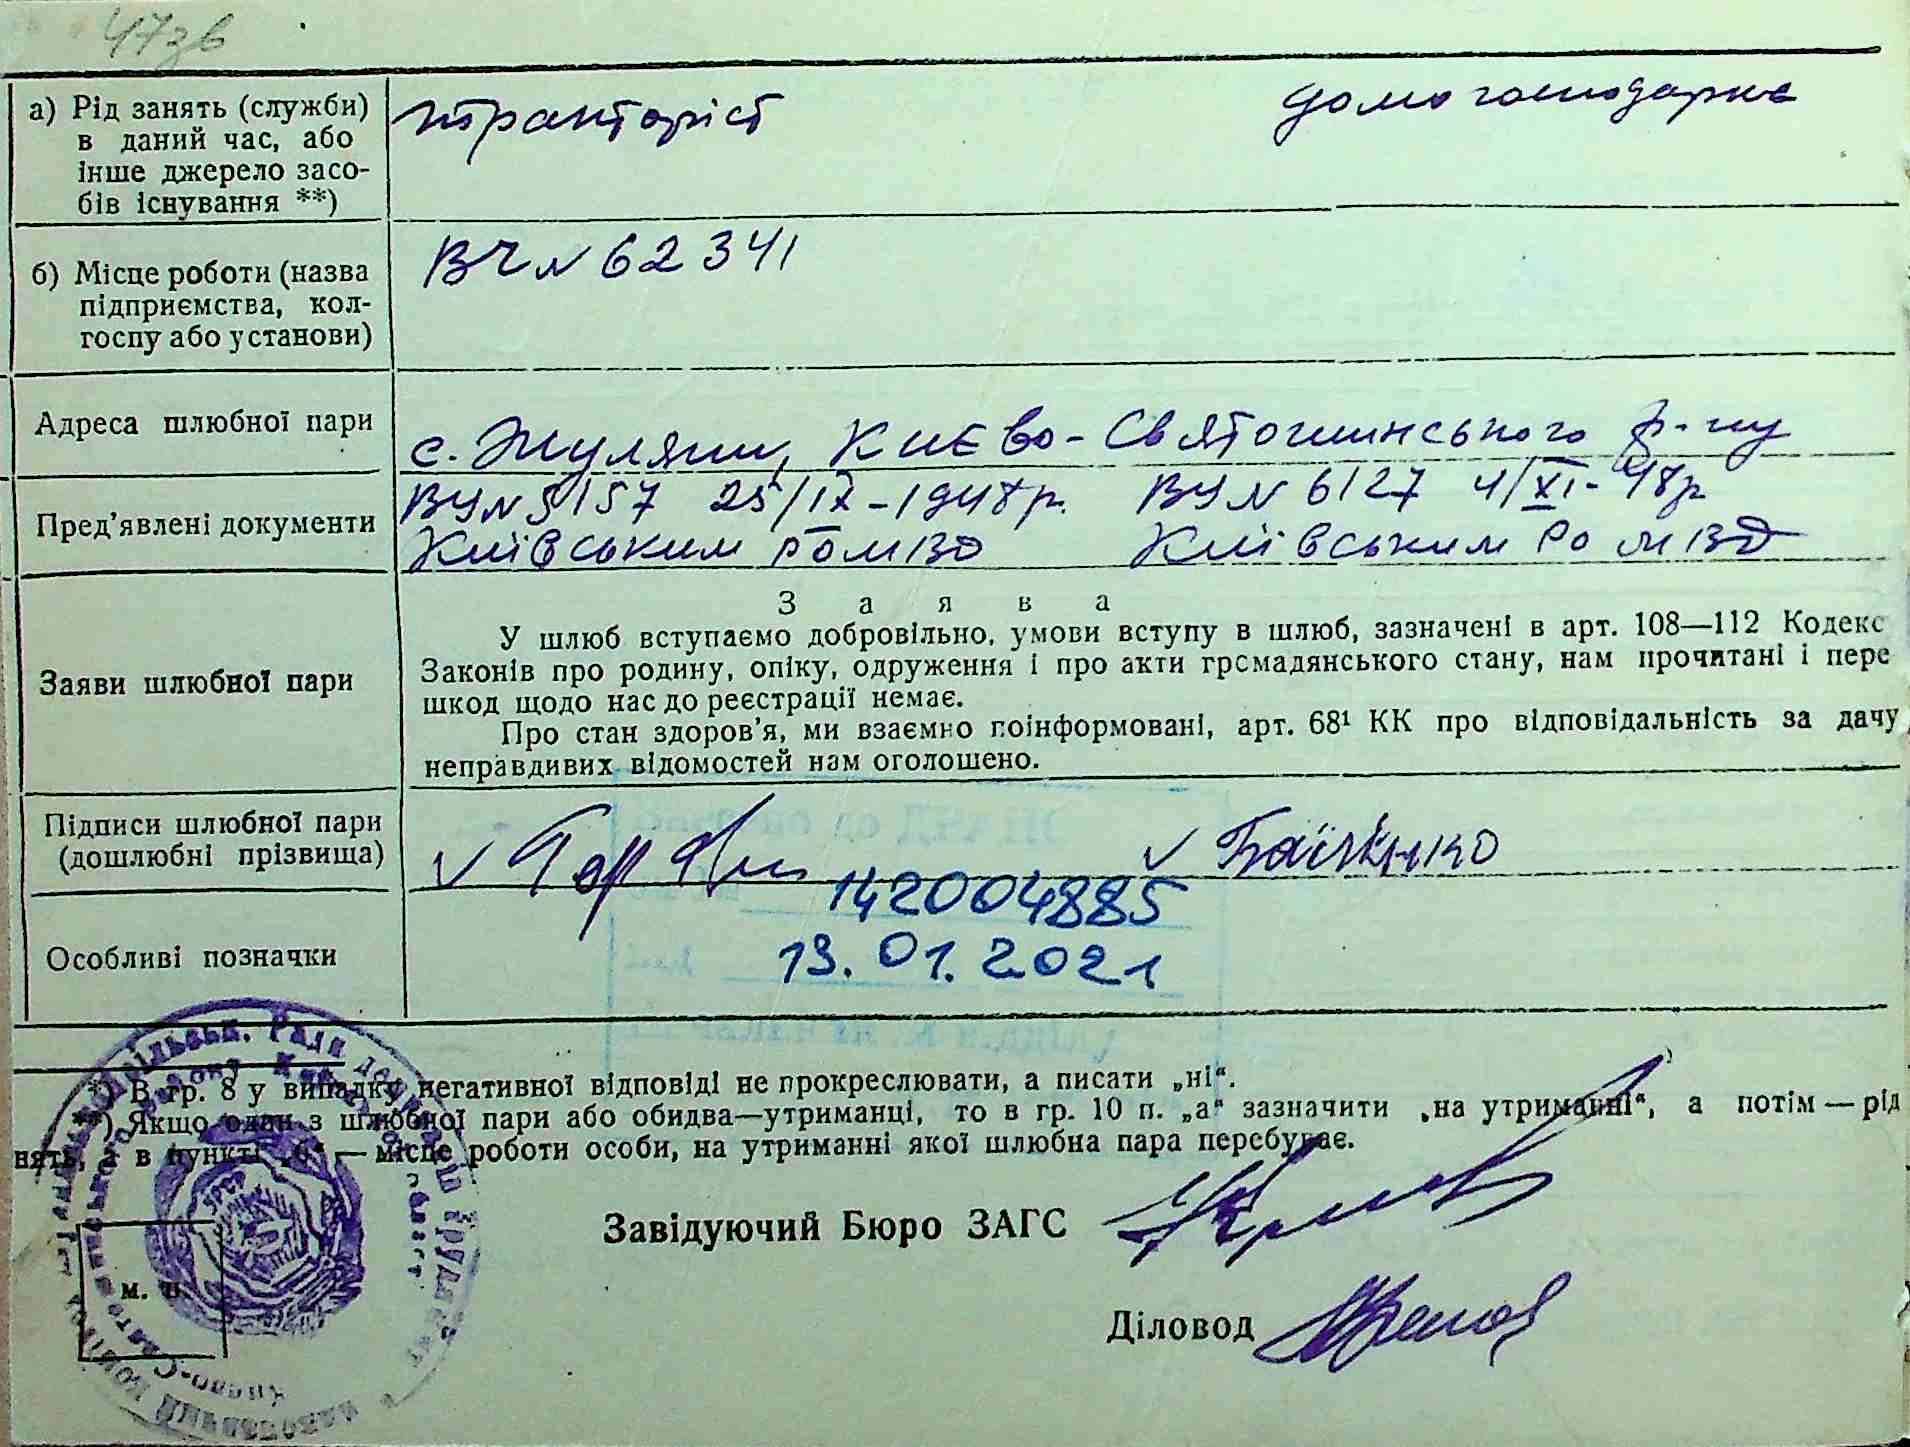 47зв
а) Рід занять (служби)
в даний час, або
інше джерело засо-
бів існування **)
тракторіст
домогосподарка
б) Місце роботи (назва
підприємства, кол-
госпу або установи)
ВЧ№ 62341
Адреса шлюбної пари
с. Жуляни, Києво-Святошинського р-ну
Пред'явлені документи
ВЧ№5157 25/IX-1948р. ВЧ№ 6127 4/XI-48р
Київським РОМВД Київським РОМВД
Заяви шлюбної пари
Заява
У шлюб вступаємо добровільно, умови вступу в шлюб, зазначені в арт. 108—112 Кодекс
Законів про родину, опіку, одруження і про акти громадянського стану, нам прочитані і пере
шкод щодо нас до реєстрації немає.
Про стан здоров'я, ми взаємно поінформовані, арт. 68¹ КК про відповідальність за дачу
неправдивих відомостей нам оголошено.
Підписи шлюбної пари
(дошлюбні прізвища)
v v
142004885
Особливі позначки
13.01.2021
*) В гр. 8 у випадку негативної відповіді не прокреслювати, а писати „ні“.
**) Якщо один з шлюбної пари або обидва—утриманці, то в гр. 10 п. „а“ зазначити „на утриманні“, а потім — рід
нять, а в пункті „б“ — місце роботи особи, на утриманні якої шлюбна пара перебуває.
Завідуючий Бюро ЗАГС
м. п.
Діловод
УРСР